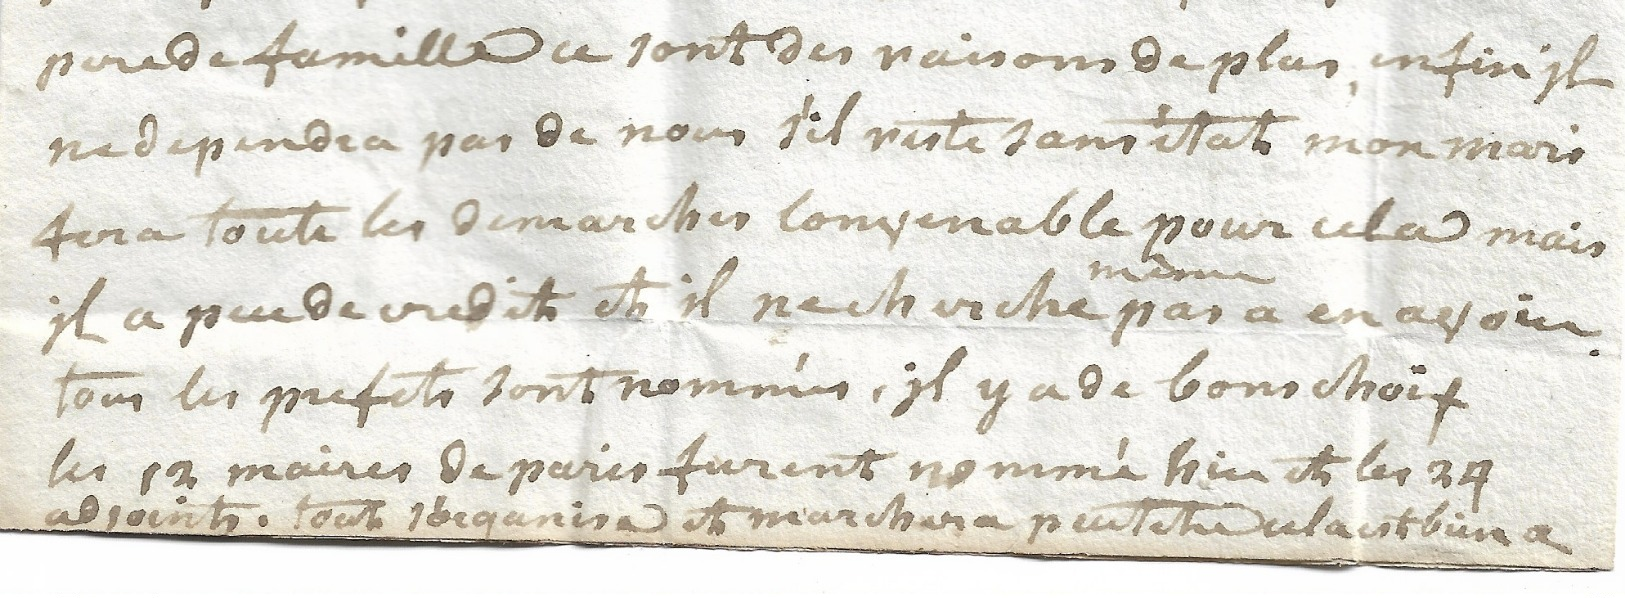 pere de famille ce sont des raisons de plus, enfin jl
ne dependra pas de nous s'il reste sans état mon mari
fera toute les demarches convenable pour cela mais
jl a peu de credit et jl ne cherche pas même a en avoir.
tous les prefets sont nommés, jl y a de bons choix
les 12 maires de paris furent nommé hier et les 24
adjoints. tout s'organise et marchera peutetre cela est bien a